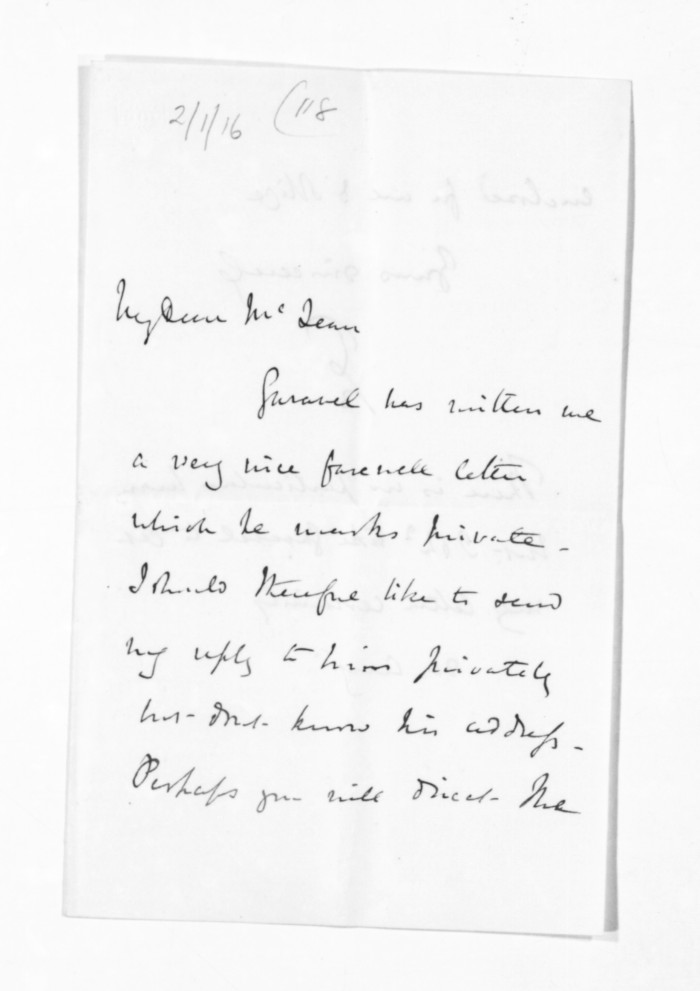 2/1/16 (118
My Dear McLean
Garavel has written me
a very nice farewell letter
which he marks private -
I should therefore like to send
my reply to him privately
but don't know his address -
Perhaps you will direct the